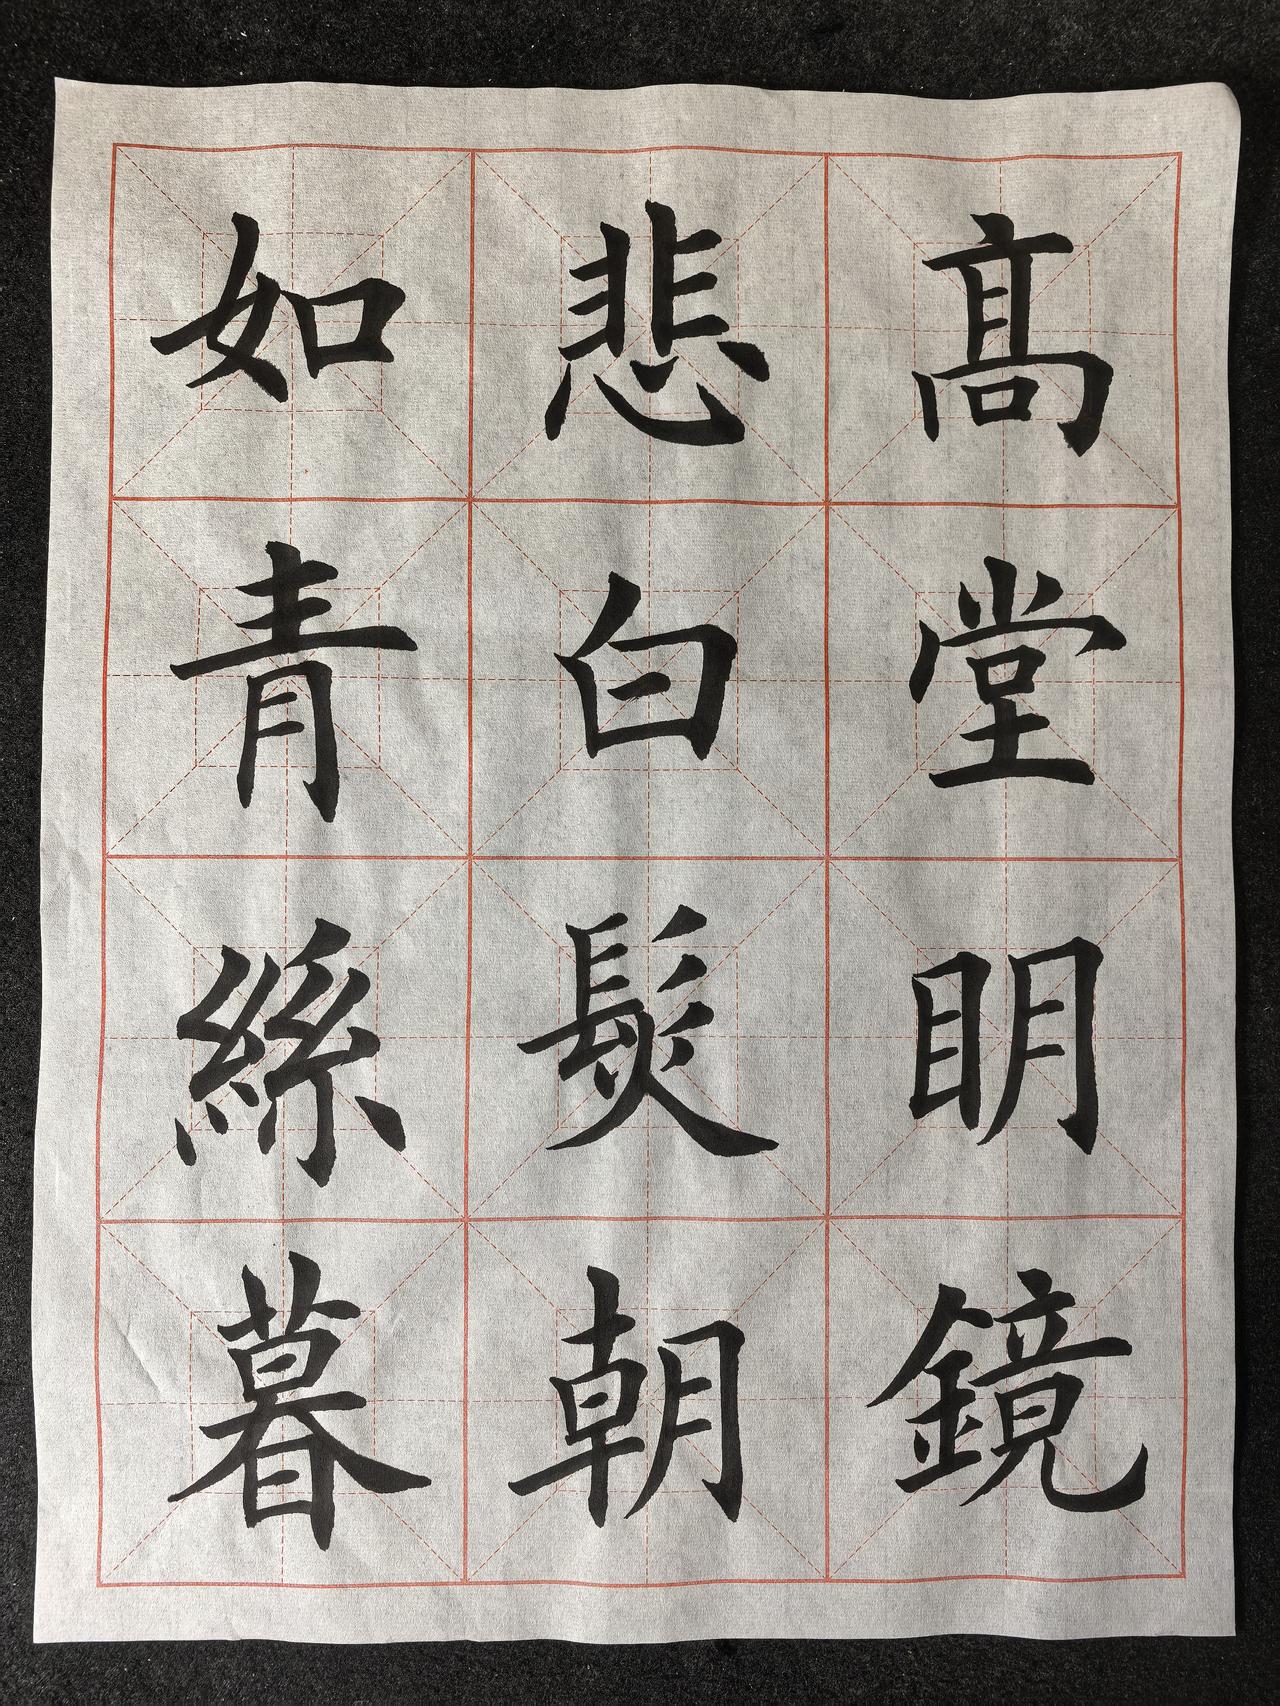 髙堂眀鏡
悲白髮朝
如青絲暮